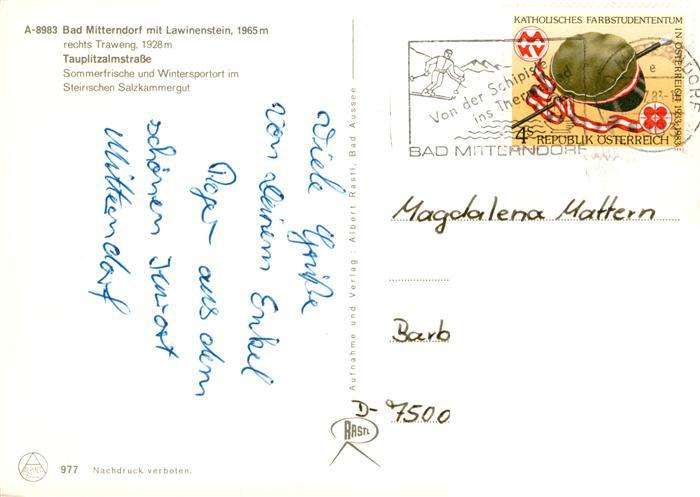 A-8983 Bad Mitterndorf mit Lawinenstein, 1965 m
rechts Traweng, 1928 m
Tauplitzalmstraße
Sommerfrische und Wintersportort im
Steirischen Salzkammergut
Viele Grüße
von deinem Enkel
aus dem
schönen Kurort
Mitterndorf
Aufnahme und Verlag: Albert Rastl, Bad Aussee
KATHOLISCHES FARBSTUDENTENTUM
IN ÖSTERREICH 1933-1983
4S
REPUBLIK ÖSTERREICH
Von der Schipiste
ins Thermalbad
BAD MITTERNDORF
Magdalena Mattern
Barb
D-7500
RASTL
977 Nachdruck verboten.